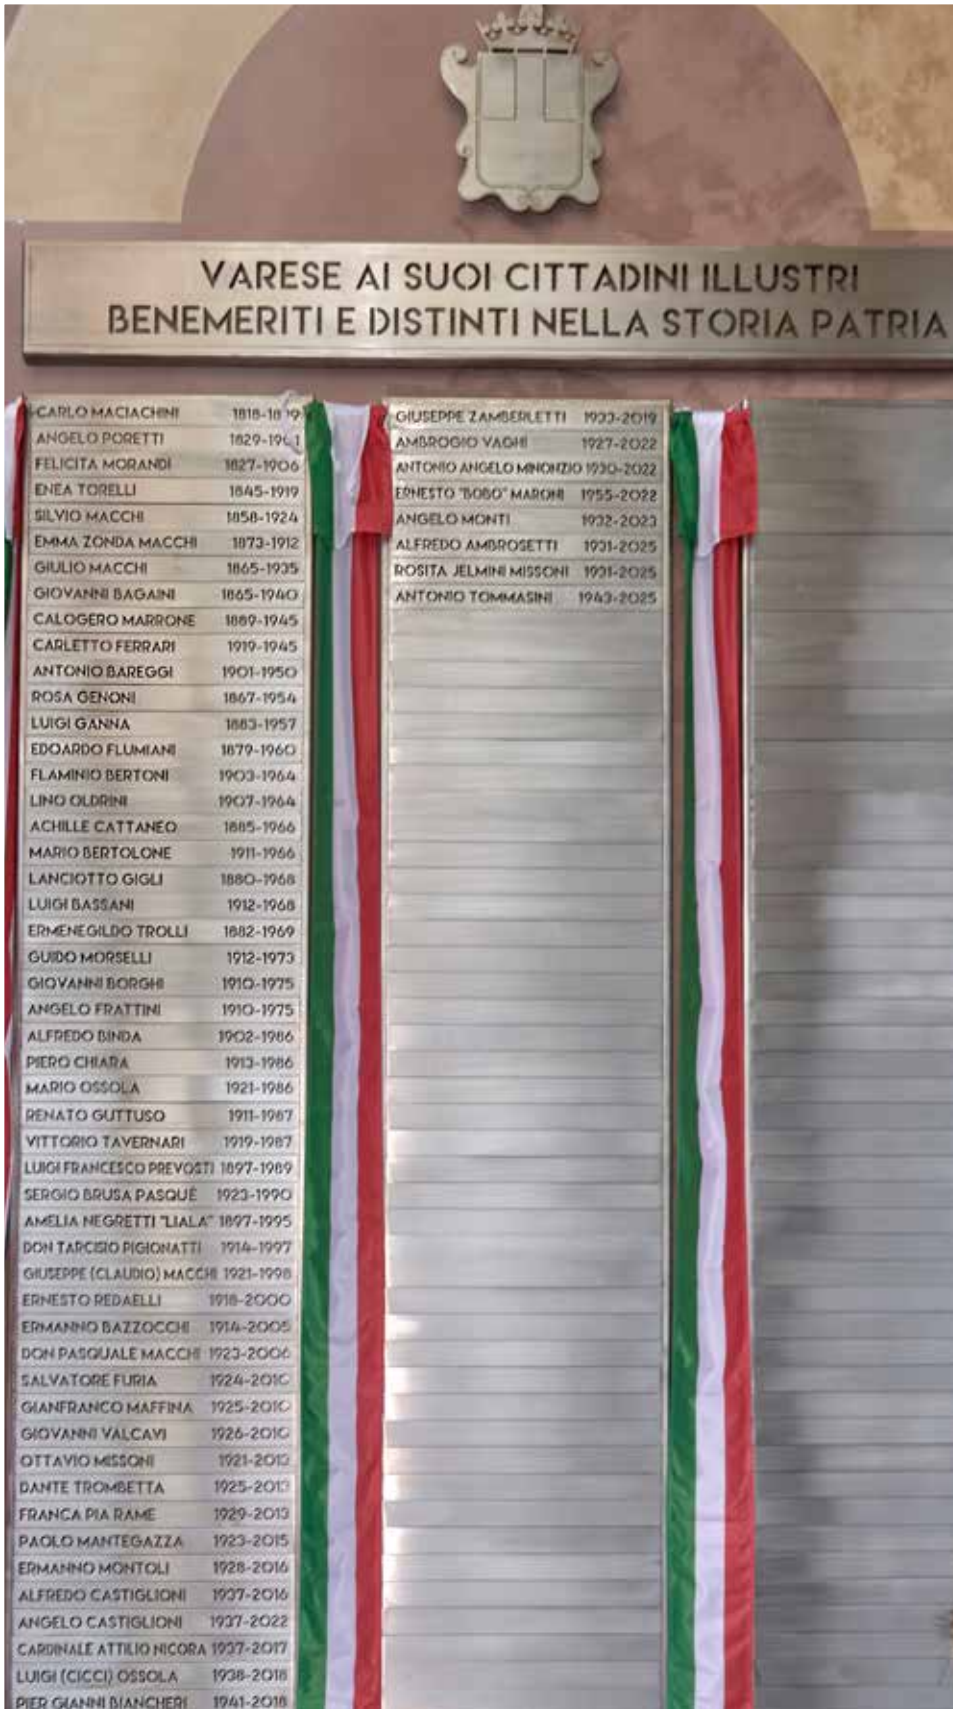 VARESE AI SUOI CITTADINI ILLUSTRI
BENEMERITI E DISTINTI NELLA STORIA PATRIA
CARLO MACIACHINI 1818-1899
ANGELO PORETTI 1829-1901
FELICITA MORANDI 1827-1906
ENEA TORELLI 1845-1919
SILVIO MACCHI 1858-1924
EMMA ZONDA MACCHI 1873-1912
GIULIO MACCHI 1865-1935
GIOVANNI BAGAINI 1865-1940
CALOGERO MARRONE 1889-1945
CARLETTO FERRARI 1919-1945
ANTONIO BAREGGI 1901-1950
ROSA GENONI 1867-1954
LUIGI GANNA 1883-1957
EDOARDO FLUMIANI 1879-1960
FLAMINIO BERTONI 1903-1964
LINO OLDRINI 1907-1964
ACHILLE CATTANEO 1885-1966
MARIO BERTOLONE 1911-1966
LANCIOTTO GIGLI 1880-1968
LUIGI BASSANI 1912-1968
ERMENEGILDO TROLLI 1882-1969
GUIDO MORSELLI 1912-1973
GIOVANNI BORGHI 1910-1975
ANGELO FRATTINI 1910-1975
ALFREDO BINDA 1902-1986
PIERO CHIARA 1913-1986
MARIO OSSOLA 1921-1986
RENATO GUTTUSO 1911-1987
VITTORIO TAVERNARI 1919-1987
LUIGI FRANCESCO PREVOSTI 1897-1989
SERGIO BRUSA PASQUÈ 1923-1990
AMELIA NEGRETTI "LIALA" 1897-1995
DON TARCISIO PIGIONATTI 1914-1997
GIUSEPPE (CLAUDIO) MACCHI 1921-1998
ERNESTO REDAELLI 1918-2000
ERMANNO BAZZOCCHI 1914-2005
DON PASQUALE MACCHI 1923-2006
SALVATORE FURIA 1924-2010
GIANFRANCO MAFFINA 1925-2010
GIOVANNI VALCAVI 1926-2010
OTTAVIO MISSONI 1921-2013
DANTE TROMBETTA 1925-2013
FRANCA PIA RAME 1929-2013
PAOLO MANTEGAZZA 1923-2015
ERMANNO MONTOLI 1928-2016
ALFREDO CASTIGLIONI 1937-2016
ANGELO CASTIGLIONI 1937-2022
CARDINALE ATTILIO NICORA 1937-2017
LUIGI (CICCI) OSSOLA 1938-2018
PIER GIANNI BIANCHERI 1941-2018
GIUSEPPE ZAMBERLETTI 1933-2019
AMBROGIO VAGHI 1927-2022
ANTONIO ANGELO MINONZIO 1930-2022
ERNESTO "BOBO" MARONI 1955-2022
ANGELO MONTI 1932-2023
ALFREDO AMBROSETTI 1931-2025
ROSITA JELMINI MISSONI 1931-2025
ANTONIO TOMMASINI 1943-2025